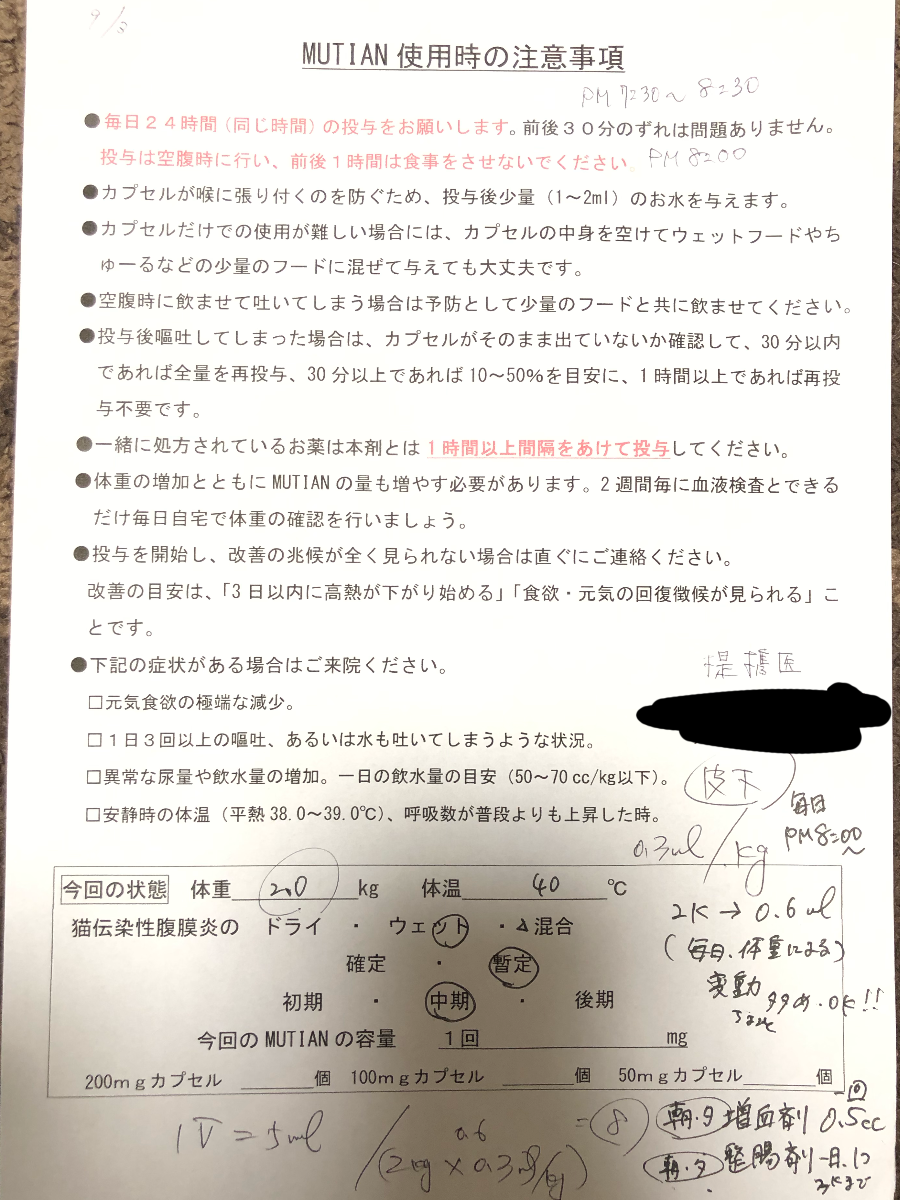 9/3
MUTIAN 使用時の注意事項
PM 7:30～8:30
●毎日２４時間（同じ時間）の投与をお願いします。前後３０分のずれは問題ありません。
投与は空腹時に行い、前後１時間は食事をさせないでください。 PM 8:00
●カプセルが喉に張り付くのを防ぐため、投与後少量（1～2ml）のお水を与えます。
●カプセルだけでの使用が難しい場合には、カプセルの中身を空けてウェットフードやち
ゅーるなどの少量のフードに混ぜて与えても大丈夫です。
●空腹時に飲ませて吐いてしまう場合は予防として少量のフードと共に飲ませてください。
●投与後嘔吐してしまった場合は、カプセルがそのまま出ていないか確認して、30 分以内
であれば全量を再投与、30 分以上であれば 10～50%を目安に、1 時間以上であれば再投
与不要です。
●一緒に処方されているお薬は本剤とは １時間以上間隔をあけて投与してください。
●体重の増加とともに MUTIAN の量も増やす必要があります。2 週間毎に血液検査とできる
だけ毎日自宅で体重の確認を行いましょう。
●投与を開始し、改善の兆候が全く見られない場合は直ぐにご連絡ください。
改善の目安は、「3 日以内に高熱が下がり始める」「食欲・元気の回復徴候が見られる」こ
とです。
●下記の症状がある場合はご来院ください。
□元気食欲の極端な減少。
□１日３回以上の嘔吐、あるいは水も吐いてしまうような状況。
□異常な尿量や飲水量の増加。一日の飲水量の目安（50～70 cc/kg以下）。
皮下
□安静時の体温（平熱 38.0～39.0℃）、呼吸数が普段よりも上昇した時。
毎日
PM8:00～
0.3ml/kg
今回の状態 体重 2.0 kg 体温 40 ℃
2K → 0.6ml
猫伝染性腹膜炎の ドライ ・ ウェット ・ 混合
(毎日、体重による)
変動
確定 ・ 暫定
多め・OK!!
初期 ・ 中期 ・ 後期
今回の MUTIAN の容量 １回 mg
200ｍｇカプセル 個 100ｍｇカプセル 個 50ｍｇカプセル 個
一回
朝・夕 増血剤 0.5cc
1V = 5ml / 0.6 (2kg × 0.3ml/kg) = 8
朝・夕 整腸剤 一日、1コ